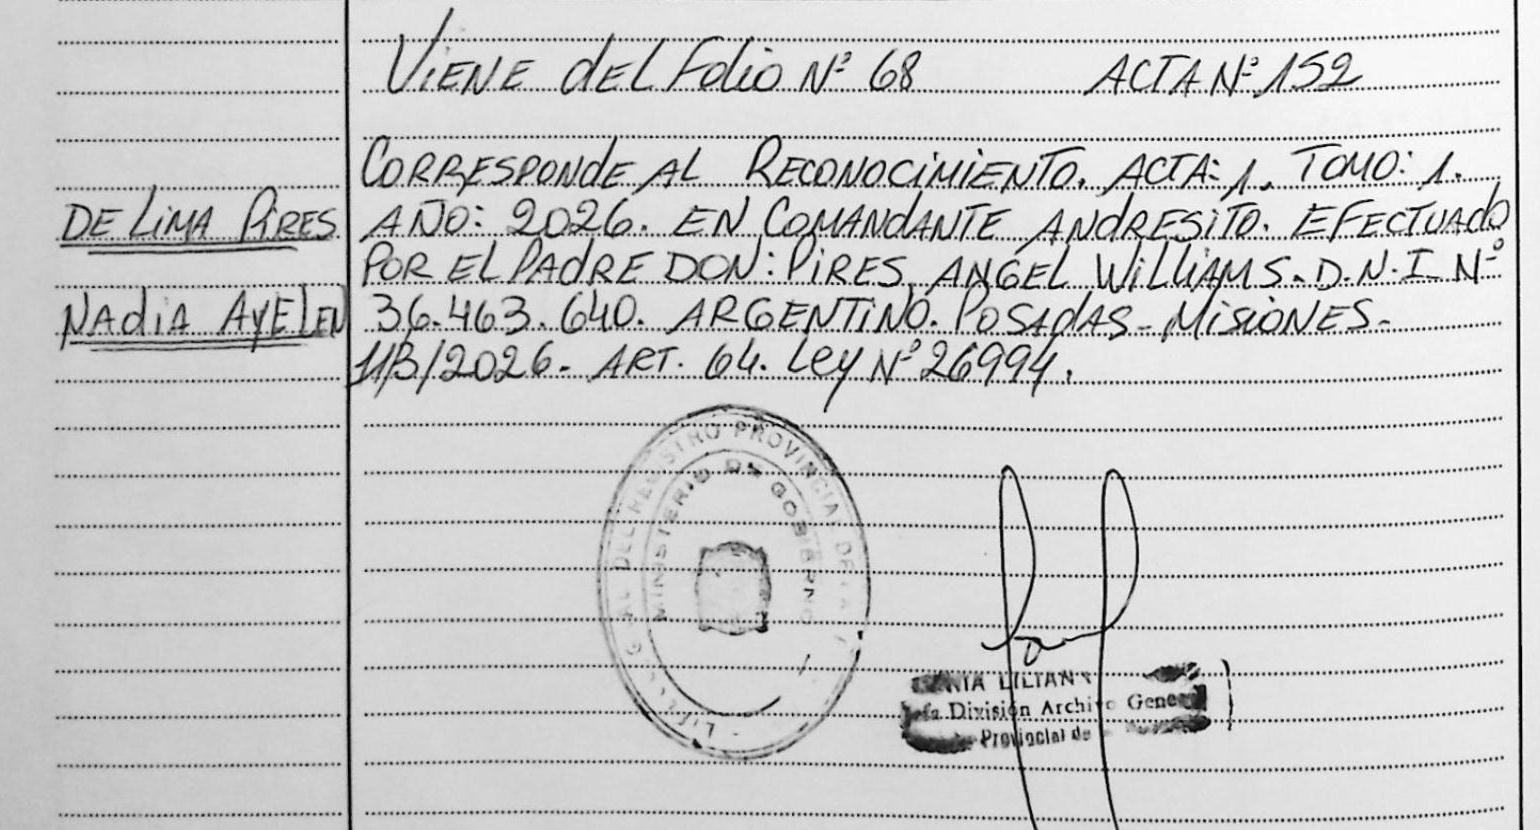 Viene del Folio Nº 68 ACTA Nº 152
Corresponde al Reconocimiento. Acta: 1. Tomo: 1.
DE LIMA PIRES Año: 2026. En Comandante Andresito. Efectuado
por el padre Don: Pires, Angel Williams. D.N.I. Nº
NADIA AYELEN 36.463.640. Argentino. Posadas - Misiones.
11/3/2026. Art. 64. Ley Nº 26994.
DEL REGISTRO PROVINCIAL DE
MINISTERIO DE GOBIERNO
LILIAN
División Archivo
Provincial de